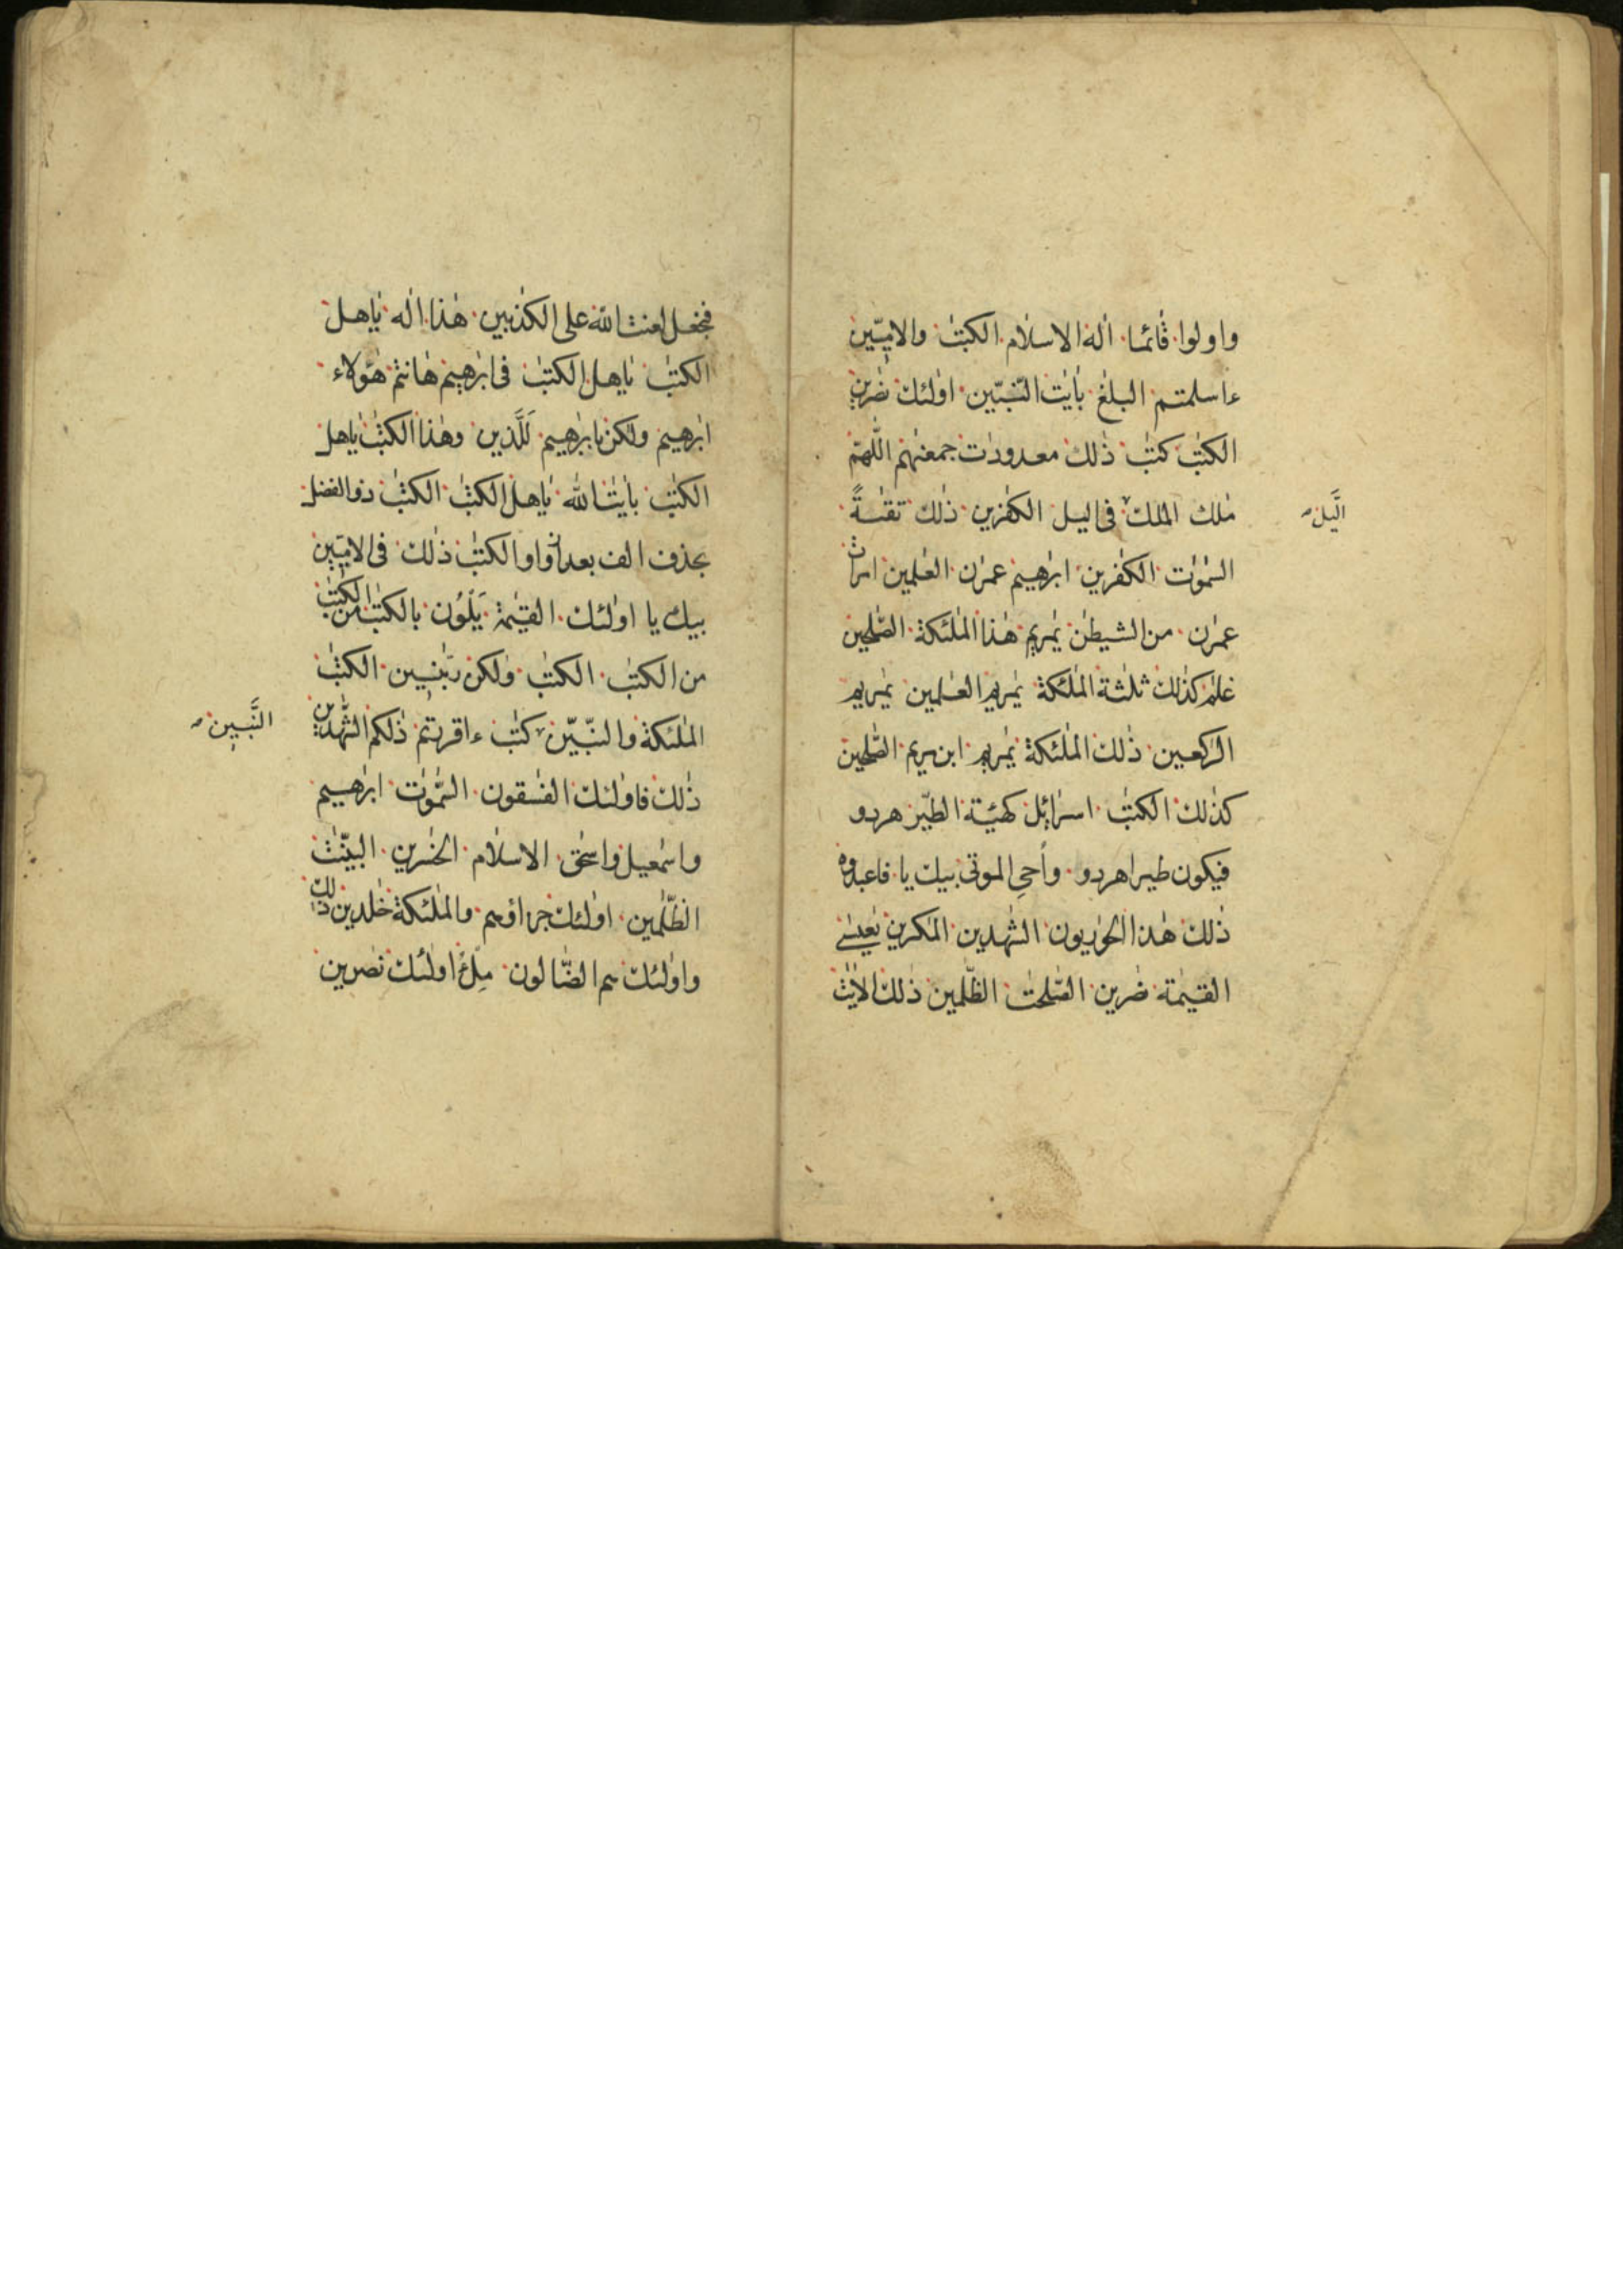 واولوا قٰائما الٰه الاسلٰام الكتٰب والاميّين
ءاسلمتم البلٰغ بأيٰت النّبيّين اولٰئك نصٰرين
الكتٰب كتٰب ذٰلك معدودٰت جمعنٰهم اللّٰهمّ
مٰلك الملك فى اليل الكفٰرين ذٰلك تقٰىةً
الَّيل
السّمٰوٰت الكٰفرين ابرٰهيم عمرٰن العٰلمين امرات
عمرٰن من الشيطٰن يٰمريم هٰذا الملٰئكة الصّٰلحين
غلٰم كذٰلك ثلٰثة الملٰئكة يٰمريم العٰلمين يٰمريم
الرٰكعين ذٰلك الملٰئكة يٰمريم ابن مريم الصّٰلحين
كذٰلك الكتٰب اسرٰائيل كهئة الطّير هردو
فيكون طيرا هردو وأحىِ الموتى بيك يا فاعبدوه
ذٰلك هٰذا الحوٰريون الشّٰهدين المٰكرين يٰعيسٰى
القيٰمة نصٰرين الصّٰلحٰت الظّٰلمين ذٰلك الاٰيٰت
فنجعل لعنت اللّٰه على الكٰذبين هٰذا الٰه يٰاهل
الكتٰب يٰاهل الكتٰب فى ابرٰهيم هٰانتم هٰؤلاء
ابرٰهيم ولٰكن بابرٰهيم لَلَّذين وهٰذا الكتٰب ياهل
الكتٰب بأيٰت اللّٰه يٰاهل الكتٰب الكتٰب ذو الفضل
بحذف الف بعد از واو الكتٰب ذٰلك فى الاميّين
بيك يا اولٰئك القيٰمة يَلْوٗن بالكتٰب من الكتٰب
من الكتٰب الكتٰب ولٰكن ربّٰنيين الكتٰب
الملٰئكة والنبيّين كتٰب ءاقررتم ذٰلكم الشّٰهدين
النَّبيين
ذٰلك فاولٰئك الفٰسقون السّمٰوٰت ابرٰهيم
واسمٰعيل واسحٰق الاسلٰام الخٰسرين البيّنٰت
الظّٰلمين اولٰئك جزاؤهم والملٰئكة خٰلدين ذٰلك
واولٰئك هم الضّالون مِلْءُ اولٰئك نصٰرين